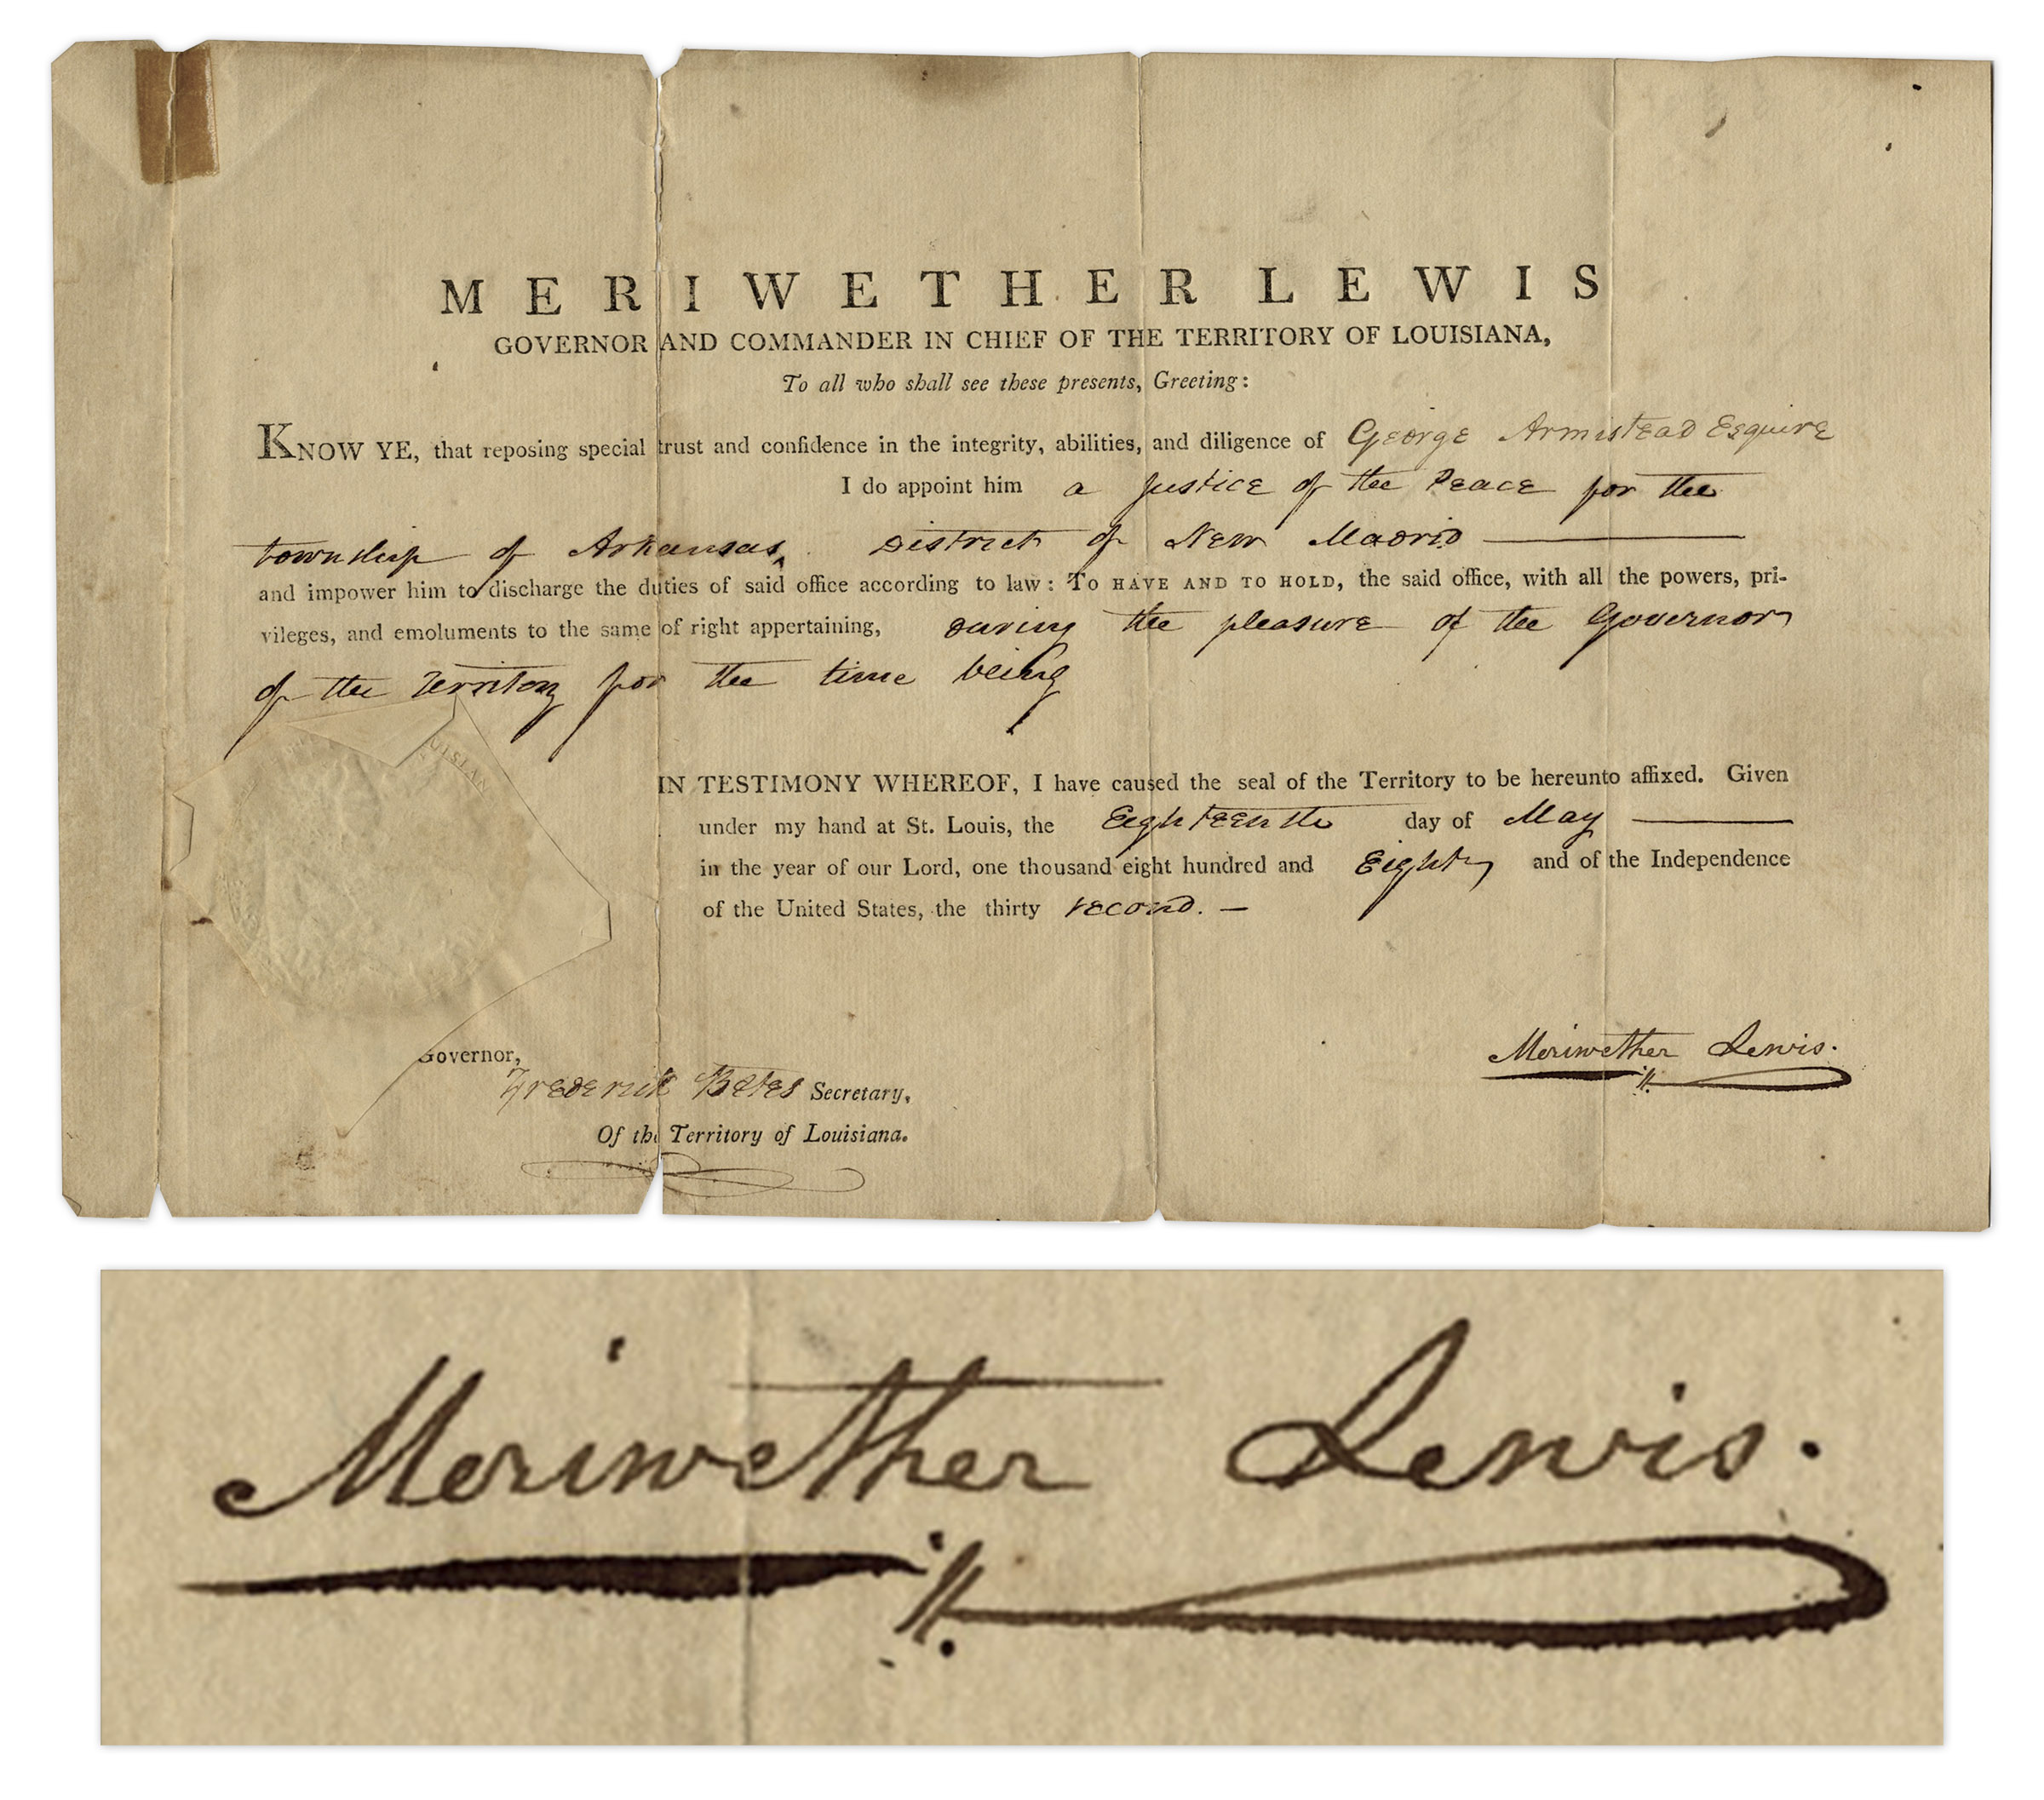 MERIWETHER LEWIS
GOVERNOR AND COMMANDER IN CHIEF OF THE TERRITORY OF LOUISIANA,
To all who shall see these presents, Greeting:
KNOW YE, that reposing special trust and confidence in the integrity, abilities, and diligence of George Armistead Esquire
I do appoint him a Justice of the Peace for the
township of Arkansas, District of New Madrid
and impower him to discharge the duties of said office according to law: TO HAVE AND TO HOLD, the said office, with all the powers, pri-
vileges, and emoluments to the same of right appertaining, during the pleasure of the Governor
of the Territory for the time being
OUISIAN
IN TESTIMONY WHEREOF, I have caused the seal of the Territory to be hereunto affixed. Given
under my hand at St. Louis, the Eighteenth day of May
in the year of our Lord, one thousand eight hundred and Eight, and of the Independence
of the United States, the thirty second. —
Meriwether Lewis.
Governor,
Frederick Bates Secretary,
Of the Territory of Louisiana.
Meriwether Lewis.